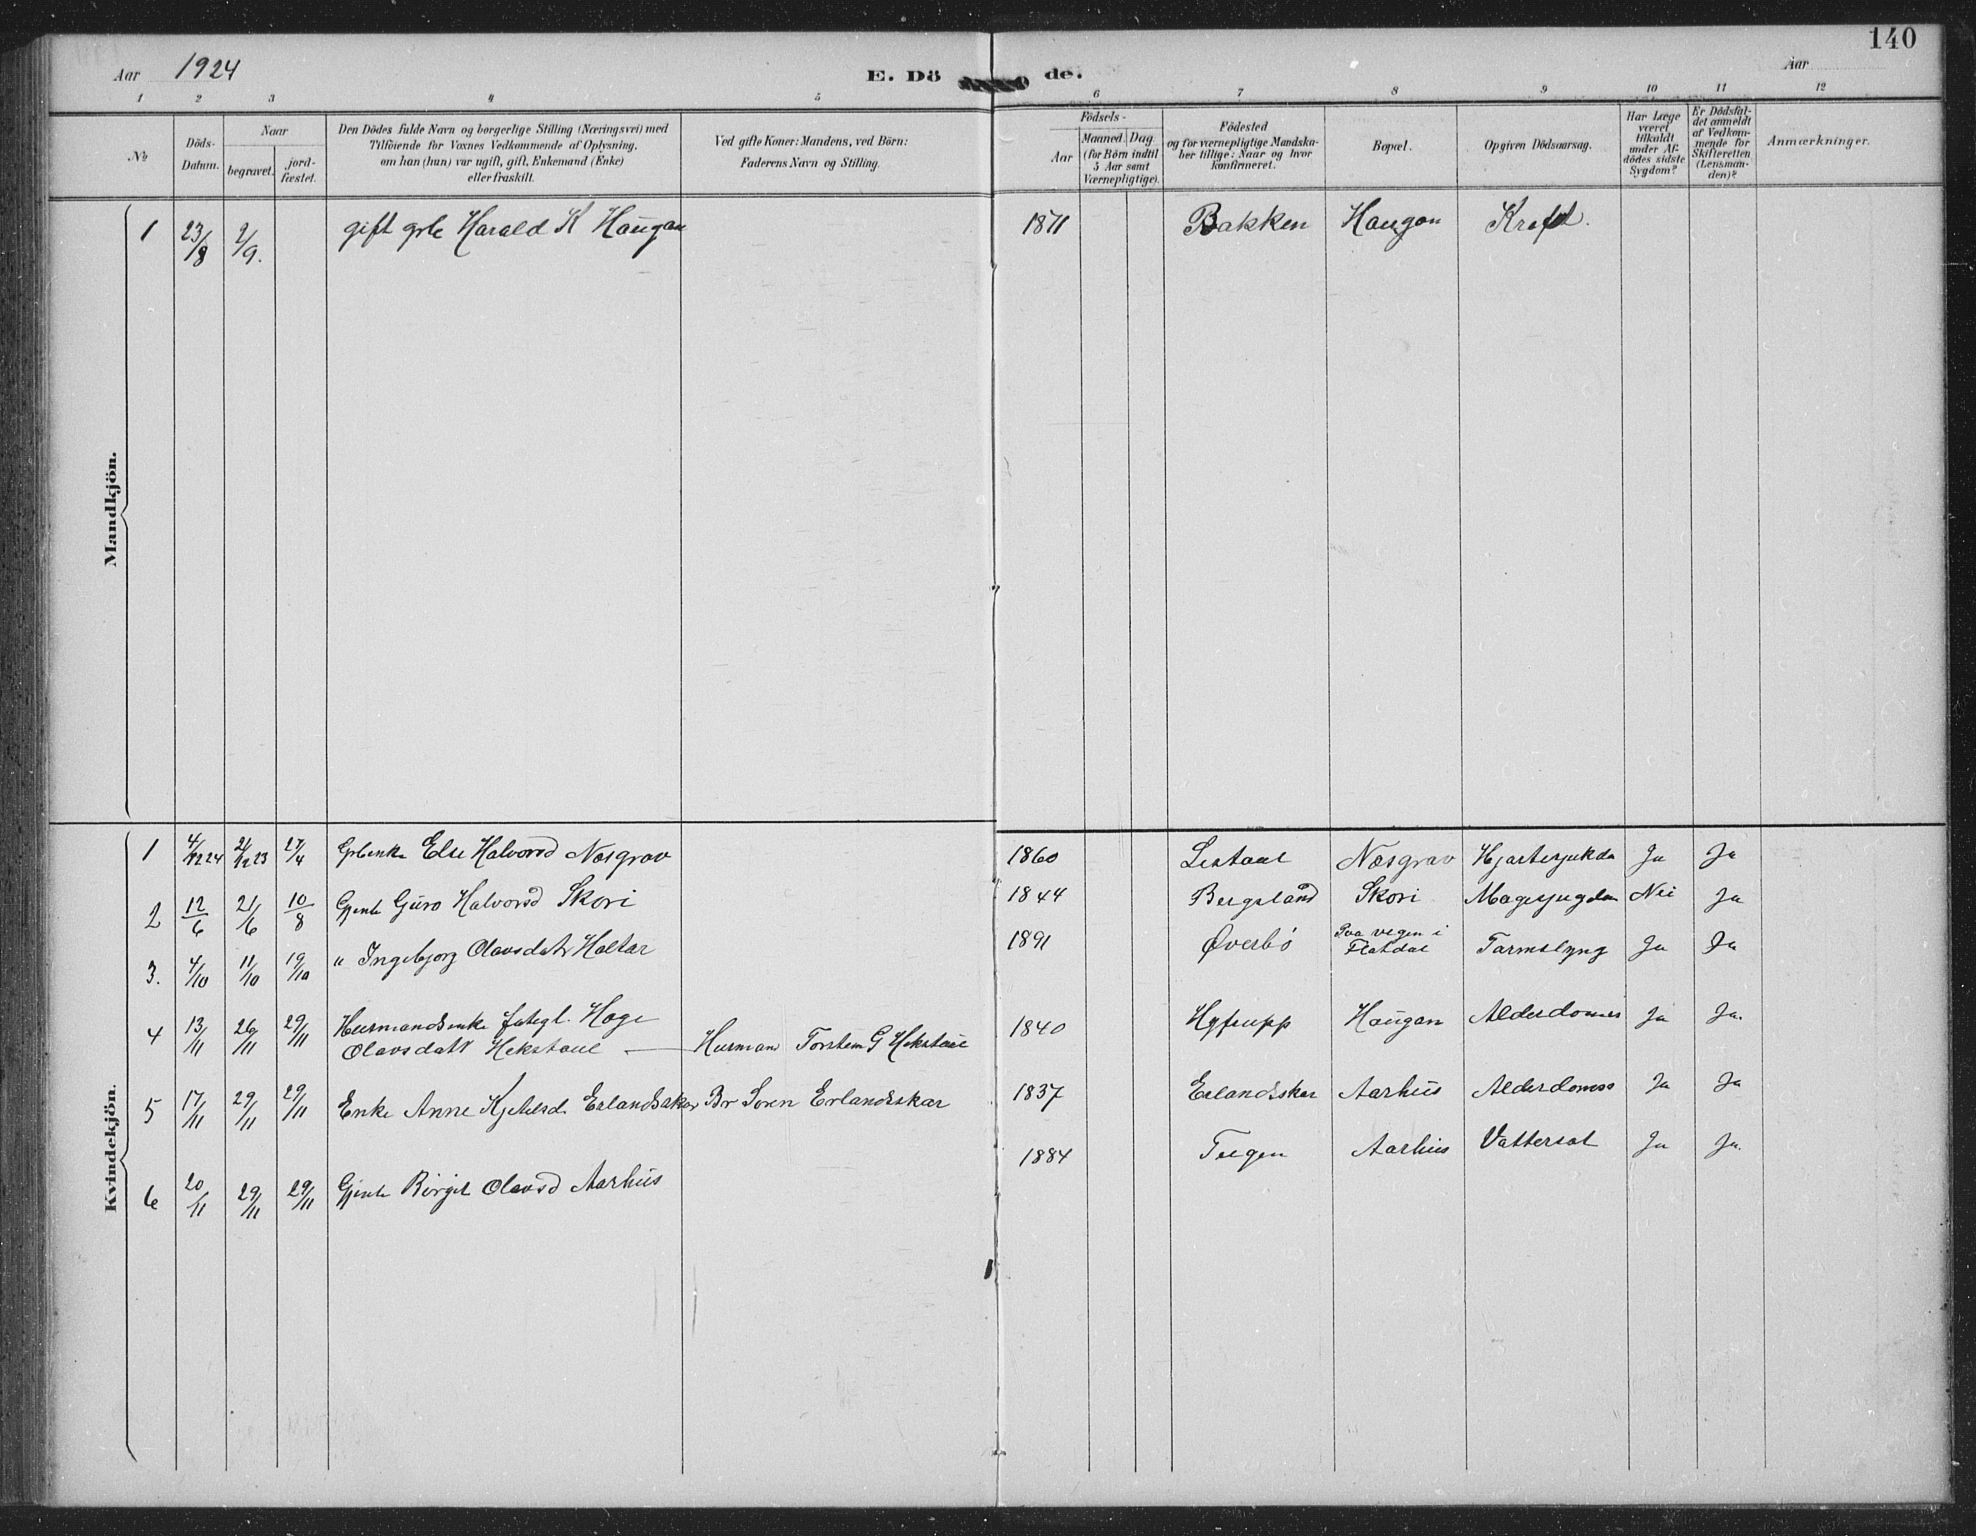 Aar 1924 E. Dö de. Aar 140
1 2 3 4 5 6 7 8 9 10 11 12
No Döds-Datum. Naar begravet. jord-fæstet.
Den Dödes fulde Navn og borgerlige Stilling (Næringsvei) med
Tilföiende for Voxnes Vedkommende af Oplysning,
om han (hun) var ugift, gift, Enkemand (Enke)
eller fraskilt.
Ved gifte Koner: Mandens, ved Börn:
Faderens Navn og Stilling.
Födsels-
Aar Maaned Dag
(for Börn indtil
5 Aar samt
Værnepligtige).
Födested
og for værnepligtige Mandska-
ber tillige: Naar og hvor
konfirmeret.
Bopæl.
Opgiven Dödsaarsag.
Har Læge
været
tilkaldt
under Af-
dödes sidste
Sygdom?
Er Dödsfal-
det anmeldt
af Vedkom-
mende for
Skifteretten
(Lensman-
den)?
Anmærkninger.
Mandkjön.
1 23/8 2/9. gift grbr Harald K Haugan 1871 Bakken Haugan Kreft.
Kvindekjön.
1 4/1224 21/1223 27/4 Grbenke Else Halvorsd Næsgrav 1860 Lestaul Næsgrav Hjartesjukdo Ja Ja
2 12/6 21/6 10/8 Gjente Guro Halvorsd Skori 1844 Bergsland Skori Magesjugdom Nei Ja
3. 4/10 11/10 19/10 " Ingebjorg Olavsdatr Haltar 1891 Øverbø Paa vegen i
Flatdal Tarmslyng Ja Ja
4 13/11 26/11 29/11 Husmandsenke fatgl. Hage
Olavsdatr Hekstaul — Husmand Torstein G Hekstaul 1840 Haugan Alderdomes Ja Ja.
5 17/11 29/11 29/11 Enke Anne Kjetilsd. Erlandsskar Br Soren Erlandsskar 1837 Erlandsskar Aarhus Alderdomss Ja Ja
6 20/11 29/11 29/11 Gjente Birgit Olavsd Aarhus 1884 Teigen Aarhus Vattersot Ja Ja.